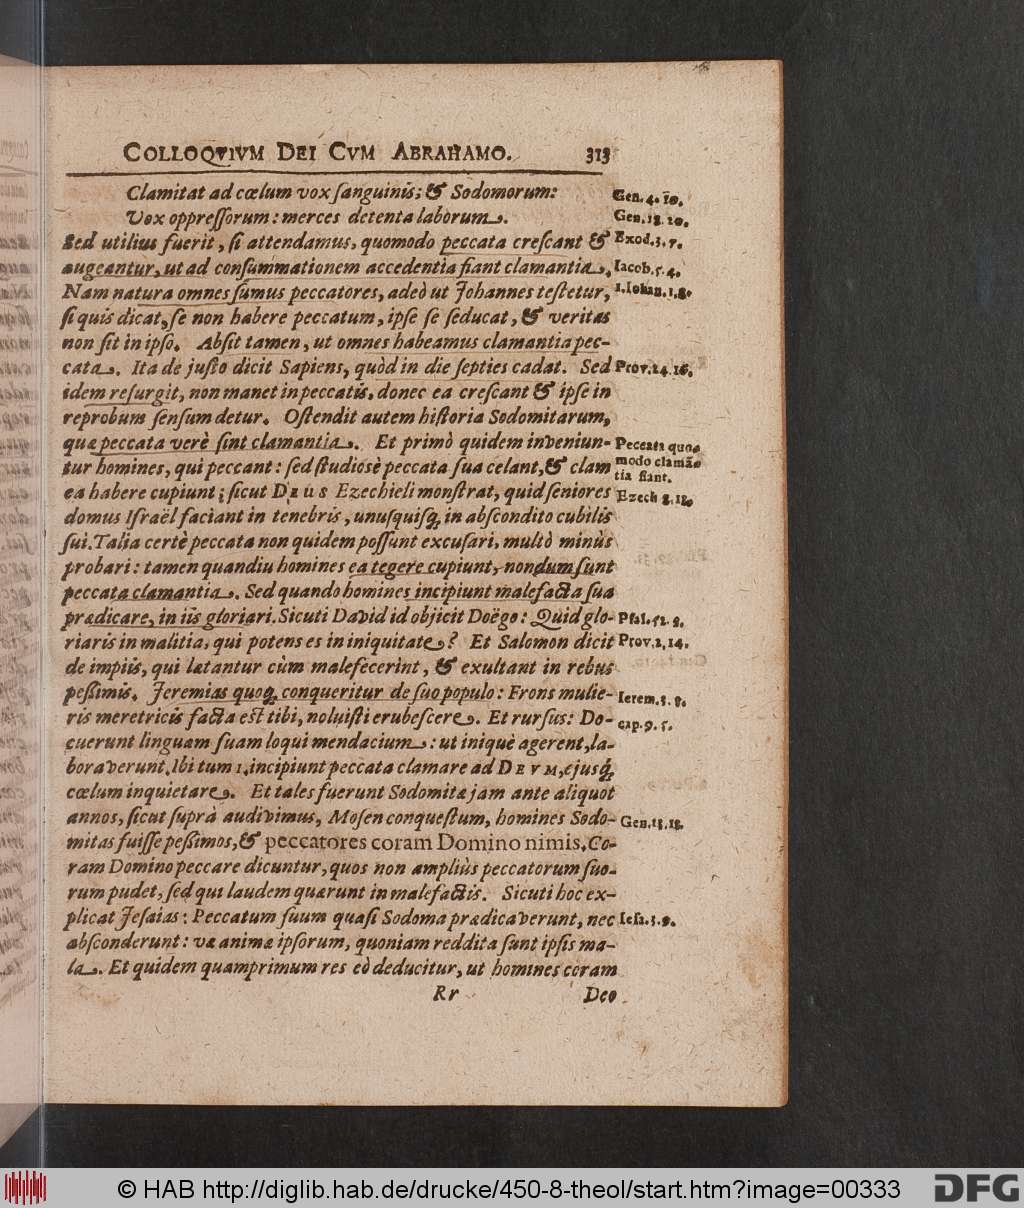 COLLOQVIVM DEI CVM ABRAHAMO. 313
Clamitat ad cœlum vox ſanguinis; & Sodomorum: Gen. 4. 10.
Vox oppreſſorum: merces detenta laborum. Gen. 18. 20.
Sed utilius fuerit, ſi attendamus, quomodo peccata creſcant & Exod. 3. 7.
augeantur, ut ad conſummationem accedentia fiant clamantia. Iacob. 5. 4.
Nam natura omnes ſumus peccatores, adeò ut Johannes teſtetur, 1. Iohan. 1. 8.
ſi quis dicat, ſe non habere peccatum, ipſe ſe ſeducat, & veritas
non ſit in ipſo. Abſit tamen, ut omnes habeamus clamantia pec-
cata. Ita de juſto dicit Sapiens, quòd in die ſepties cadat. Sed Prov. 24. 16.
idem reſurgit, non manet in peccatis, donec ea creſcant & ipſe in
reprobum ſenſum detur. Oſtendit autem hiſtoria Sodomitarum,
quæ peccata verè ſint clamantia. Et primò quidem inveniun- Peccata quo-
tur homines, qui peccant: ſed ſtudiosè peccata ſua celant, & clam modo clamā-
tia fiant.
ea habere cupiunt; ſicut DEUS Ezechieli monſtrat, quid ſeniores Ezech 8. 18.
domus Iſraël faciant in tenebris, unuſquiſq; in abſcondito cubilis
ſui. Talia certè peccata non quidem poſſunt excuſari, multò minùs
probari: tamen quandiu homines ea tegere cupiunt, nondum ſunt
peccata clamantia. Sed quando homines incipiunt malefacta ſua
prædicare, in iis gloriari. Sicuti David id objicit Doëgo: Quid glo- Pſal. 52. 3.
riaris in malitia, qui potens es in iniquitate? Et Salomon dicit Prov. 2. 14.
de impiis, qui lætantur cùm malefecerint, & exultant in rebus
peſſimis. Jeremias quoq; conqueritur de ſuo populo: Frons mulie- Ierem. 3. 8.
ris meretricis facta eſt tibi, noluiſti erubeſcere. Et rurſus: Do- cap. 9. 5.
cuerunt linguam ſuam loqui mendacium: ut iniquè agerent, la-
boraverunt. Ibi tum 1. incipiunt peccata clamare ad DEVM, ejusq;
cœlum inquietare. Et tales fuerunt Sodomitæ jam ante aliquot
annos, ſicut ſuprà audivimus, Moſen conqueſtum, homines Sodo- Gen. 13. 13.
mitas fuiſſe peſſimos, & peccatores coram Domino nimis. Co-
ram Domino peccare dicuntur, quos non ampliùs peccatorum ſuo-
rum pudet, ſed qui laudem quærunt in malefactis. Sicuti hoc ex-
plicat Jeſaias: Peccatum ſuum quaſi Sodoma prædicaverunt, nec Ieſa. 3. 9.
abſconderunt: væ animæ ipſorum, quoniam reddita ſunt ipſis ma-
la. Et quidem quamprimum res eò deducitur, ut homines coram
Rr Deo
© HAB http://diglib.hab.de/drucke/450-8-theol/start.htm?image=00333 DFG